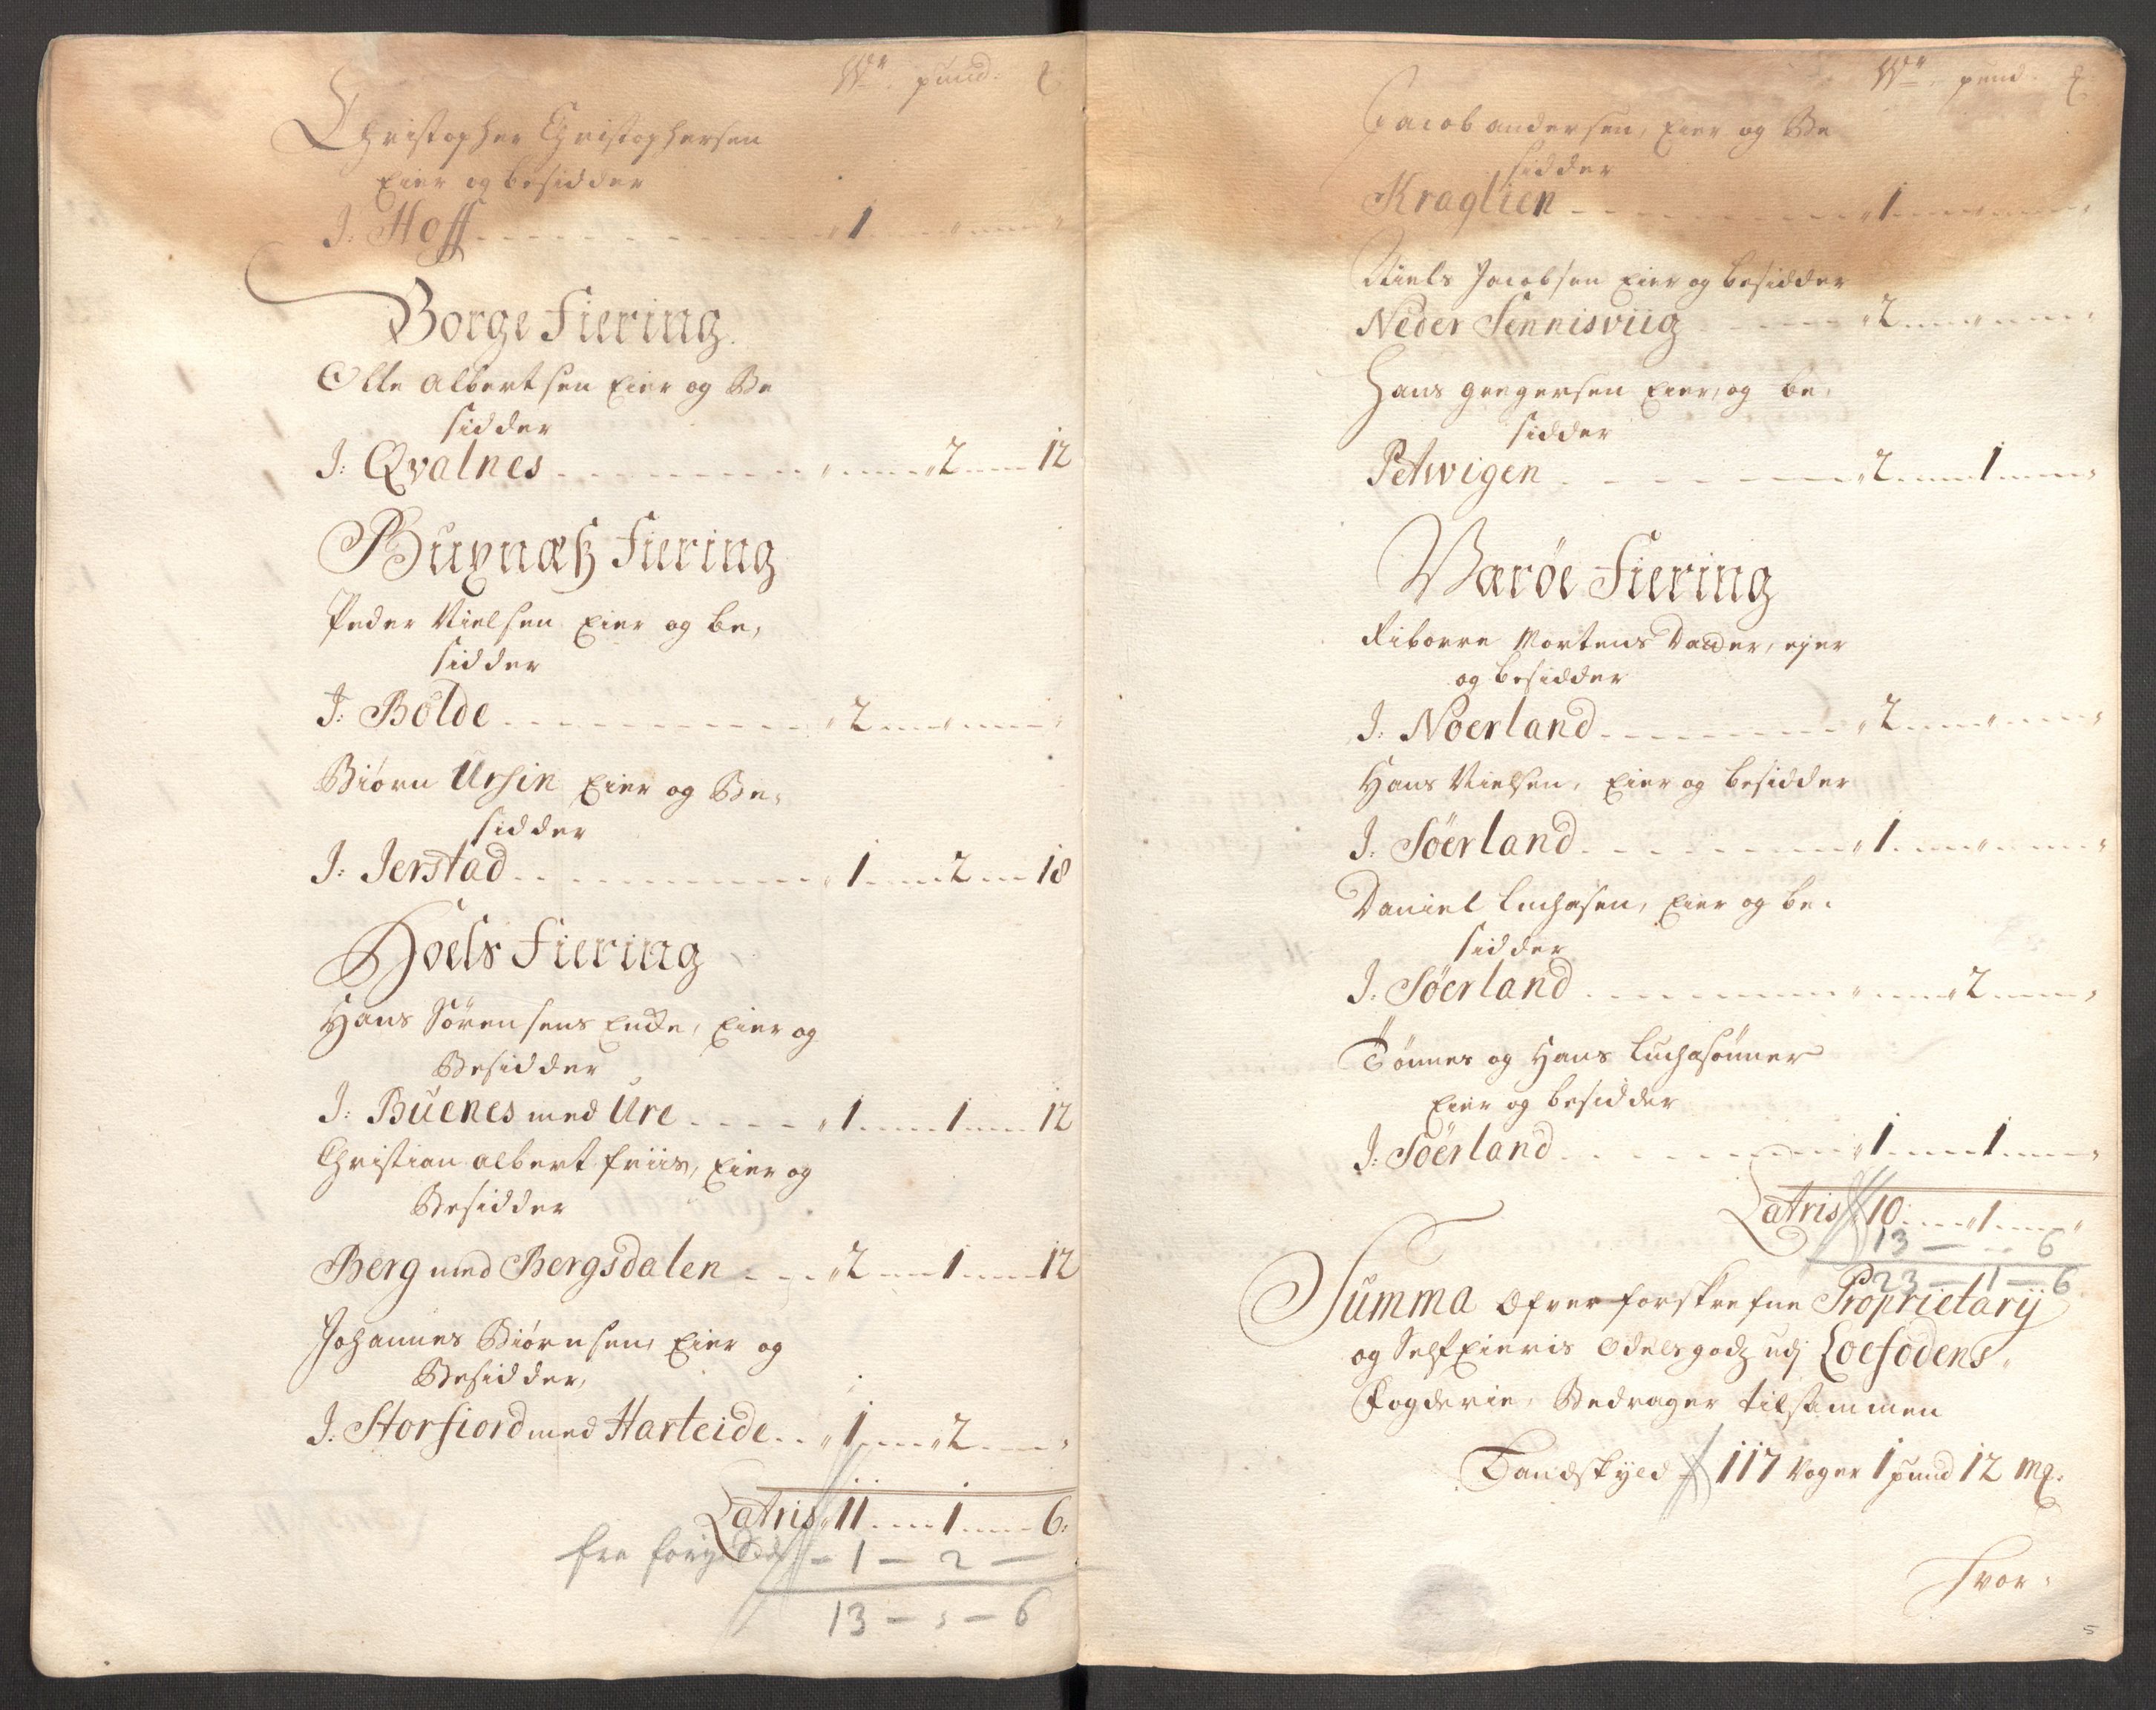 W: pund.
Christopher Christophersen
Eier og besidder
J. Hoff 1
Borge Fiering
Olle Albertsen Eier og Be
sidder
J: Qvalnes 2 12
Buxnæs Fiering
Peder Nielsen Eier og be,
sidder
J: Bolde 2
Biørn Ursin Eier og Be,
sidder
J: Jerstad 1 2 18
Hoels Fiering
Hans Sörensens Encke, Eier og
Besidder
J: Buenes med Ure 1 1 12
Christian Albert Friis, Eier og
Besidder
Berg med Bergsdalen 2 1 12
Johannes Biørnsen Eier og
Besidder,
J. Storfiord med Harteide 1 2
Latris 11 1 6.
fra forige Side - 1 - 2 -
13 - - 6
W: pund.
Jacob Andersen, Eier og Be
sidder
Kraglien 1
Niels Jacobsen Eier og besidder
Neder Sennisviig 2
Hans Gregersen Eier, og be,
sidder
Petvigen 2 1
Værøe Fiering
Mortens Datter, ejer
og besidder
J. Noerland 2
Hans Nielsen, Eier og besidder
J. Söerland 1
Daniel Luchasen, Eier og be,
sidder
J. Söerland 2
Tönnes og Hans Luchasönner
Eier og besidder
J. Söerland 1 1
Latris 10 1
13 - - 6
23 - 1 - 6
Summa Ofverforskrefne Proprietarij
og SelfEieris Odelsgodz udj Loefodens
Fogderie, Bedrager tilsammen
Landskyld 117 Voger 1 pund 12 mk.
hvor,
5